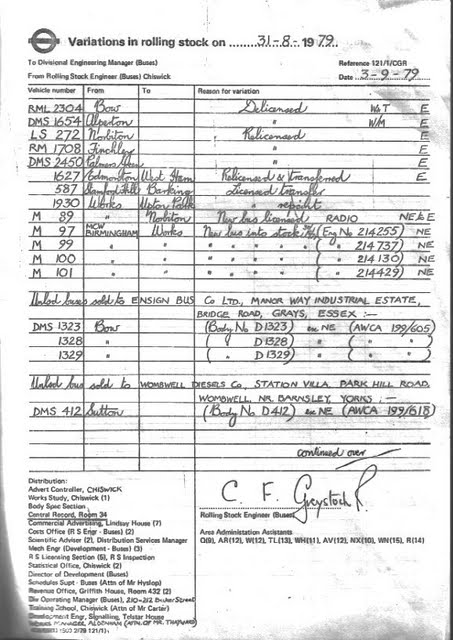 Variations in rolling stock on 31-8-1979.
To Divisional Engineering Manager (Buses) Reference 121/1/CGR
From Rolling Stock Engineer (Buses) Chiswick Date 3-9-79
Vehicle number From To Reason for variation
RML 2304 Bow Delicensed W&T E
DMS 1654 Alperton " W/M E
LS 272 Norbiton Relicensed E
RM 1708 Finchley " E
DMS 2450 Palmers Green " E
1627 Edmonton West Ham Relicensed & transferred E
587 Stamford Hill Barking Licensed transfer
1930 Works Upton Park " repaint
M 89 " Norbiton New bus licensed RADIO NE & E
M 97 MCW BIRMINGHAM Works New bus into stock (Eng No 214255) NE
M 99 " " " " " " ( " 214737) NE
M 100 " " " " " " ( " 214130) NE
M 101 " " " " " " ( " 214429) NE
Unlcd buses sold to ENSIGN BUS Co LTD., MANOR WAY INDUSTRIAL ESTATE,
BRIDGE ROAD, GRAYS, ESSEX :-
DMS 1323 Bow (Body No D1323) ex NE (AWCA 199/605)
1328 " ( " D1328) " ( " " )
1329 " ( " D1329) " ( " " )
Unlcd bus sold to WOMBWELL DIESELS Co, STATION VILLA, PARK HILL ROAD,
WOMBWELL, NR. BARNSLEY, YORKS :-
DMS 412 Sutton (Body No D412) ex NE (AWCA 199/618)
continued over
Distribution:
Advert Controller, CHISWICK
Works Study, Chiswick (1)
Body Spec Section
Central Record, Room 34
Commercial Advertising, Lindsay House (7)
Costs Office (R S Engr - Buses) (2)
Scientific Adviser (2), Distribution Services Manager
Mech Engr (Development - Buses) (3)
R S Licensing Section (5), R S Inspection
Statistical Office, Chiswick (2)
Director of Development (Buses)
Schedules Supt - Buses (Attn of Mr Hyslop)
Revenue Office, Griffith House, Room 432 (2)
Div Operating Manager (Buses), 210-212
Training School, Chiswick (Attn of Mr Carter)
Development Engr, Signalling, Telstar House
MANAGER, ALDENHAM (ATTN. OF MR.
C. F. Greystock
Rolling Stock Engineer (Buses)
Area Administation Assistants
Q(9), AR(12), W(12), TL(13), WH(11), AV(12), NX(10), WN(15), R(14)